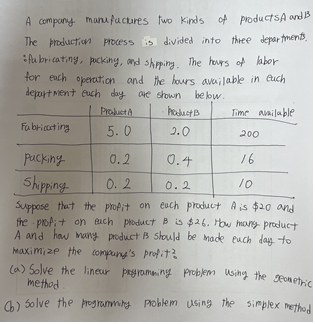 A company manufactures two kinds of products A and B
The production process is divided into three departments.
: fabricating, packing, and shipping. The hours of labor
for each operation and the hours available in each
department each day are shown below.
Product A Product B Time available
Fabricating 5.0 2.0 200
packing 0.2 0.4 16
Shipping 0.2 0.2 10
Suppose that the profit on each product A is $20 and
the profit on each product B is $26. How many product
A and how many product B should be made each day to
maximize the company's profit?
(a) Solve the linear programming problem using the geometric
method
(b) Solve the programming problem using the simplex method